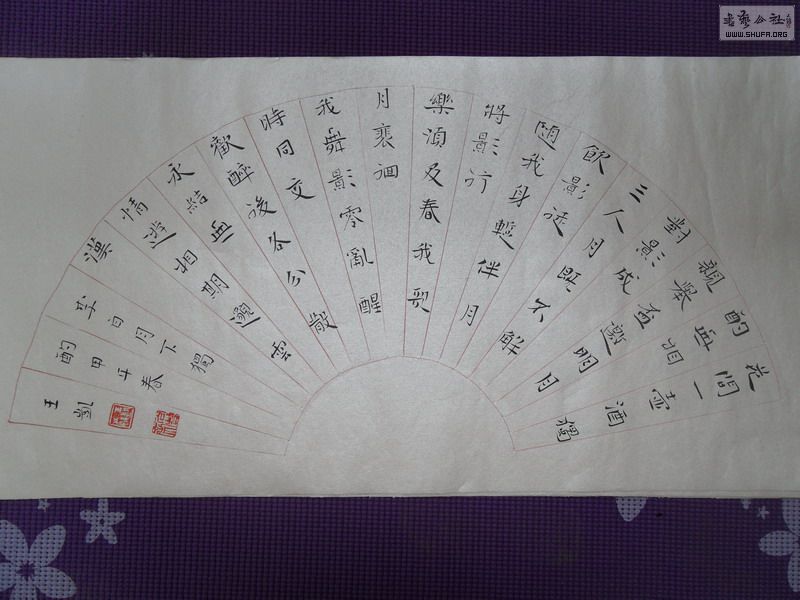 花間一壺酒獨
酌無相
親舉盃邀明月
對影成
三人月既不解
飲影徒
隨我身暫伴月
將影行
樂須及春我歌
月裴徊
我舞影零亂醒
時同交
歡醉後各分散
永結無
情遊相期邈雲
漢
李白月下獨
酌甲午春
王凱
書藝公社
WWW.SHUFA.ORG